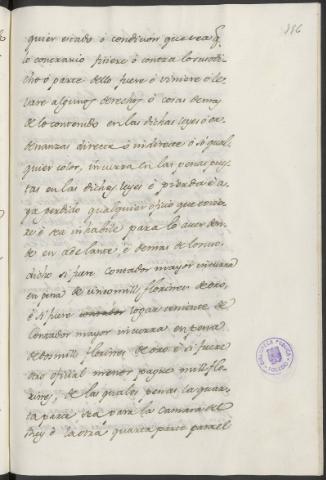 186
quier estado ô condicion que sea q̃
lo contrario hiciere ô contra lo susodi-
cho ô parte dello fuere ô viniere ô le-
vare algunos derechos ô cosas demas
de lo contenido en las dichas leyes ô or-
denanzas directe ô indirecte ô so qual-
quier color, incurra en las penas pues-
tas en las dichas leyes ê pierda ê a-
ya perdido qualquier oficio que tovie-
re ê sea inhabile para lo aver den-
de en adelante ê demas de lo suso-
dicho si fuere Contador mayor incurra
en pena de cinco mill florines de oro,
ê si fuere logar teniente de
Contador mayor incurra en pena
de dos mill florines de oro ê si fuere
otro oficial menor pague mill flo-
rines, de las quales penas la quar-
ta parte sea para la camara del
Rey ê la otra quarta parte para el
BIBLIOTECA PUBLICA
TOLEDO